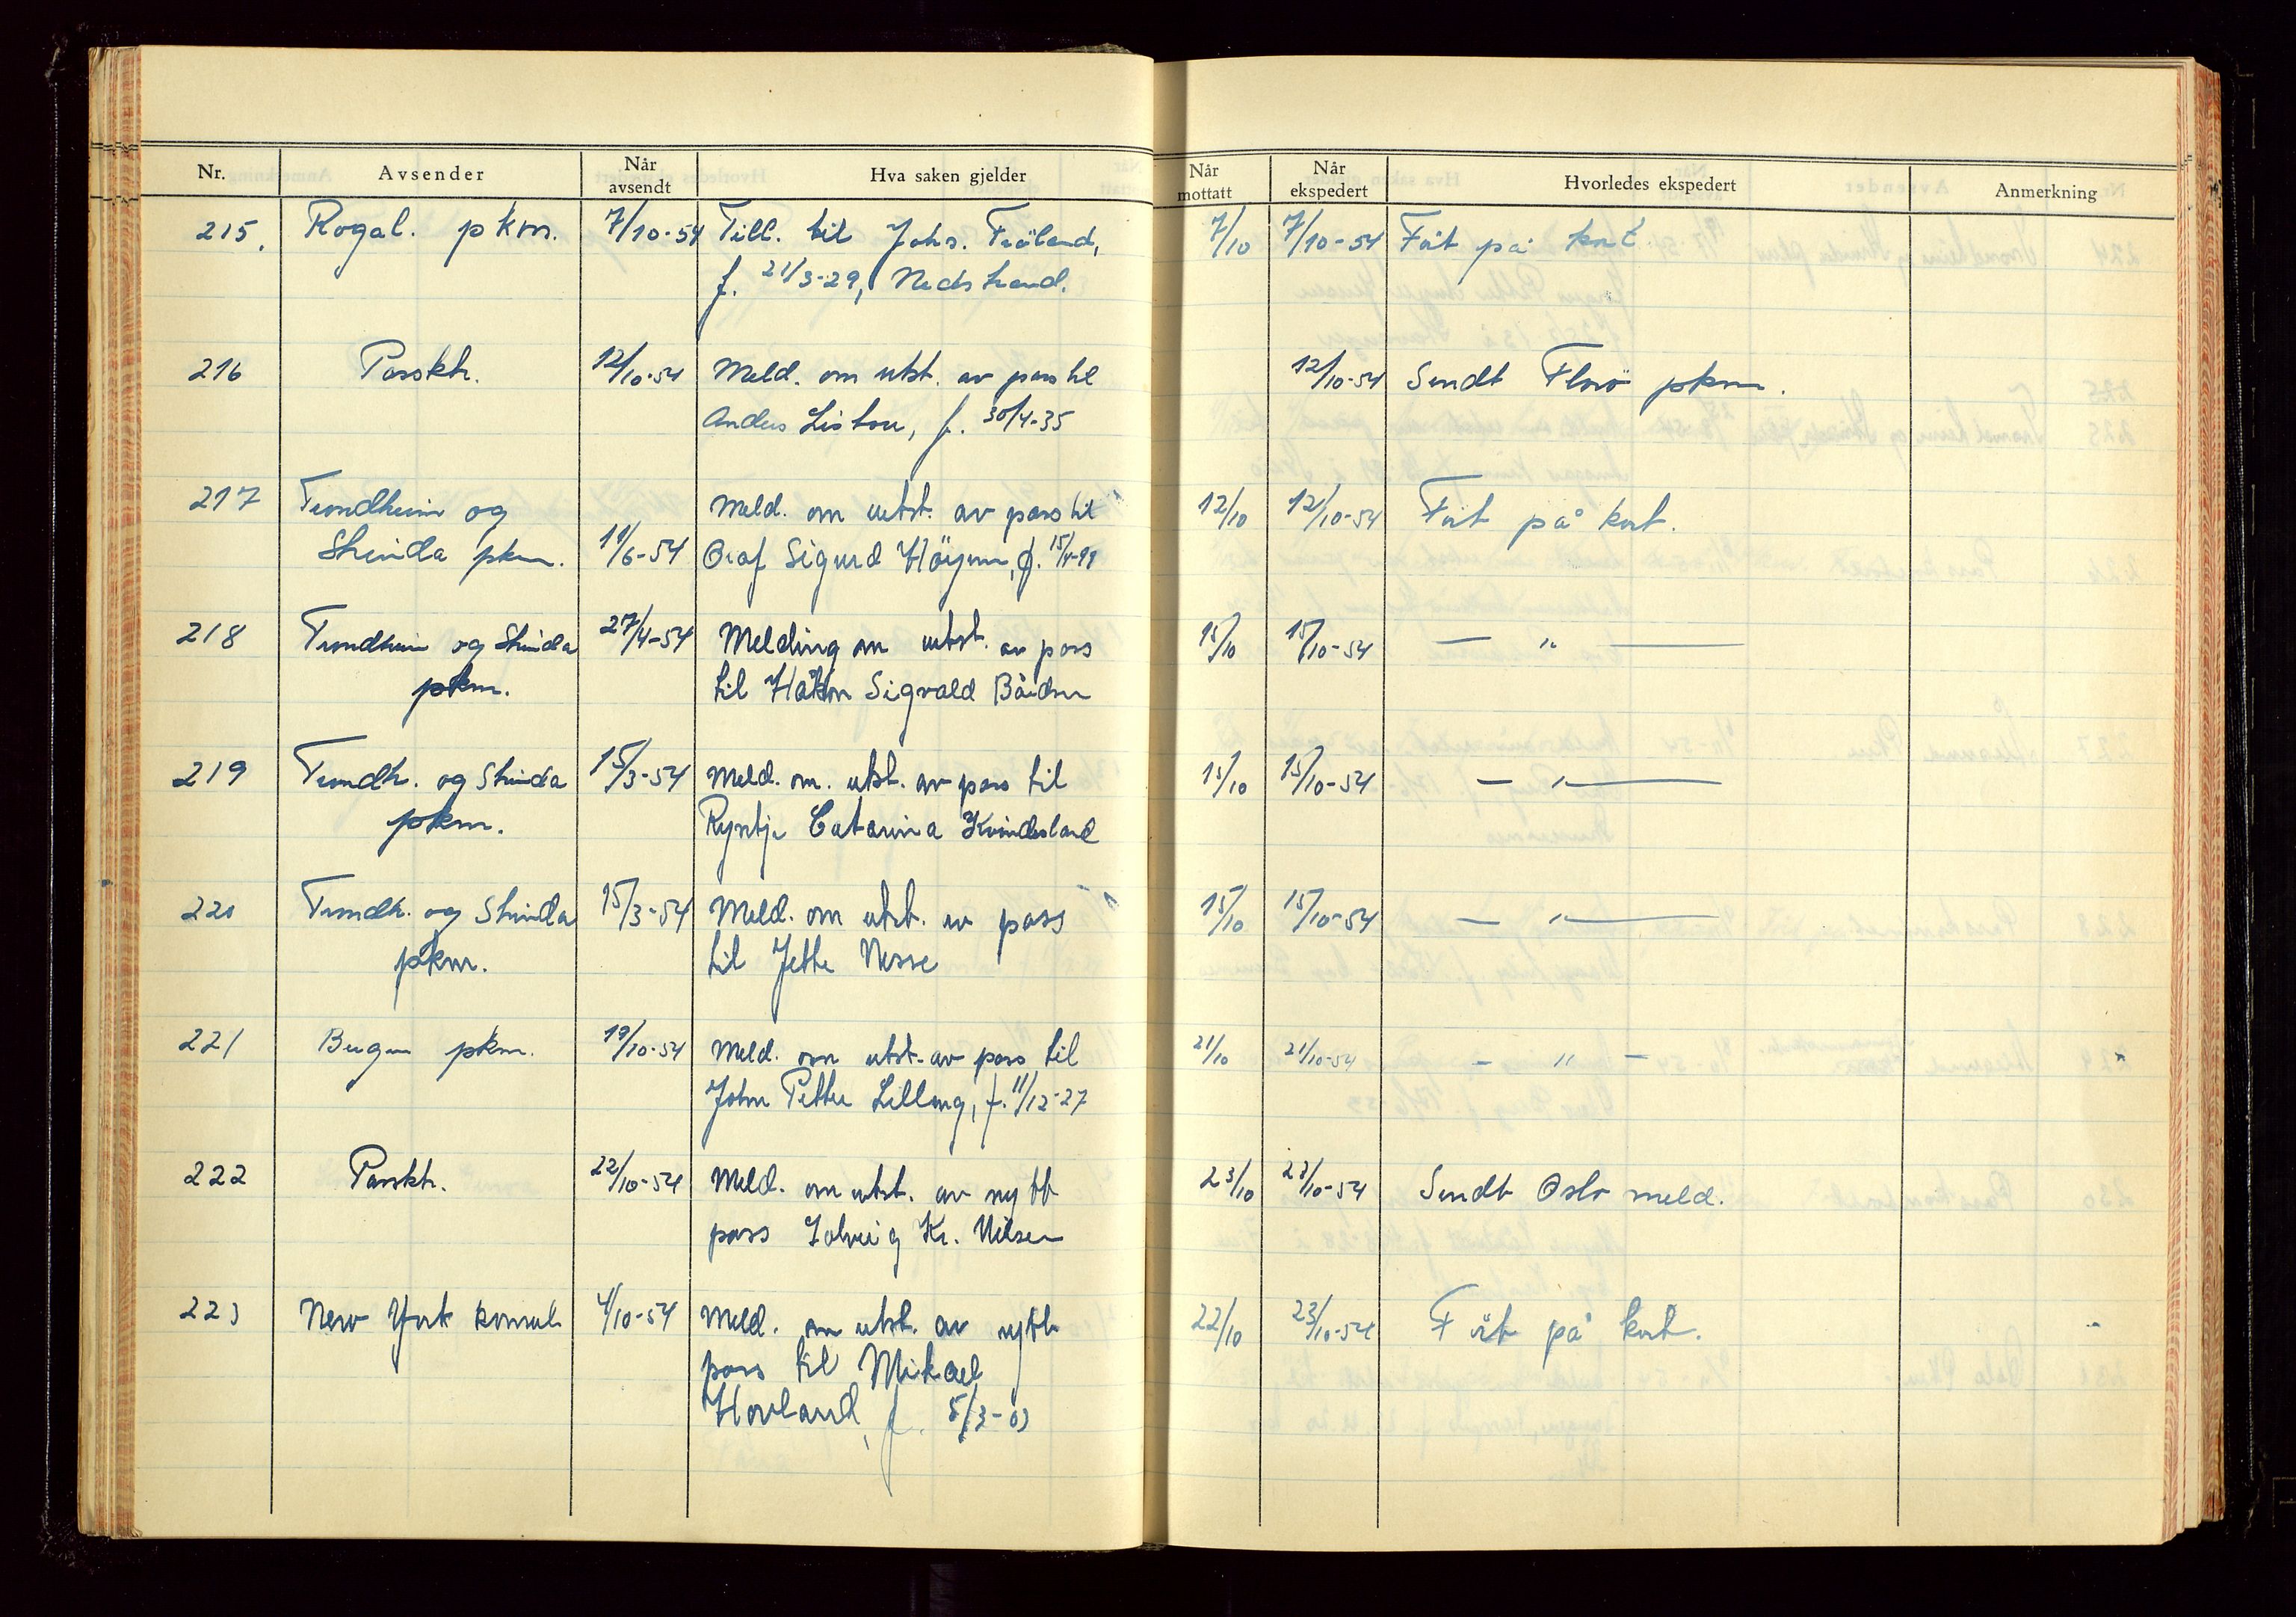 Nr. Avsender Når avsendt Hva saken gjelder Når mottatt Når ekspedert Hvorledes ekspedert Anmerkning
215. Rogal. pkm. 7/10-54 Till. til Johs. Fröland, 7/10 7/10-54 Fört på kort
f. 21/3-29, Nedstrand.
216 Passktr. 12/10-54 Meld. om utst. av pass til 12/10-54 Sendt Florö pkm.
Anders f. 30/4-35
217 Trondheim og Meld. om utst. av pass til 12/10 12/10-54 Fört på kort.
Strinda pkm. 11/6-54 Olaf Sigurd f.
218 Trondheim og Strinda 27/4-54 Melding om utst. av pass 15/10 15/10-54 — " —
pkm. til Håkon Sigvald
219 Trondh. og Strinda 15/3-54 Meld. om. utst. av pass til 15/10 15/10-54 — " —
pkm. Catarina Kvindesland
220 Trondh. og Strinda 15/3-54 Meld. om utst. av pass 15/10 15/10-54 — " —
pkm. til Jette Nesse
221 Bergen pkm. 19/10-54 Meld. om utst. av pass til 21/10 21/10-54 — " —
John Petter f. 11/12-27
222 Passktr. 22/10-54 Meld. om utst. av nytt 23/10 23/10-54 Sendt Oslo meld.
pass Solveig Kr. Nilsen
223 New York konsul 4/10-54 Meld. om utst. av nytt 22/10 23/10-54 Fört på kort.
pass til Mikael
Hovland, f. 5/3-03